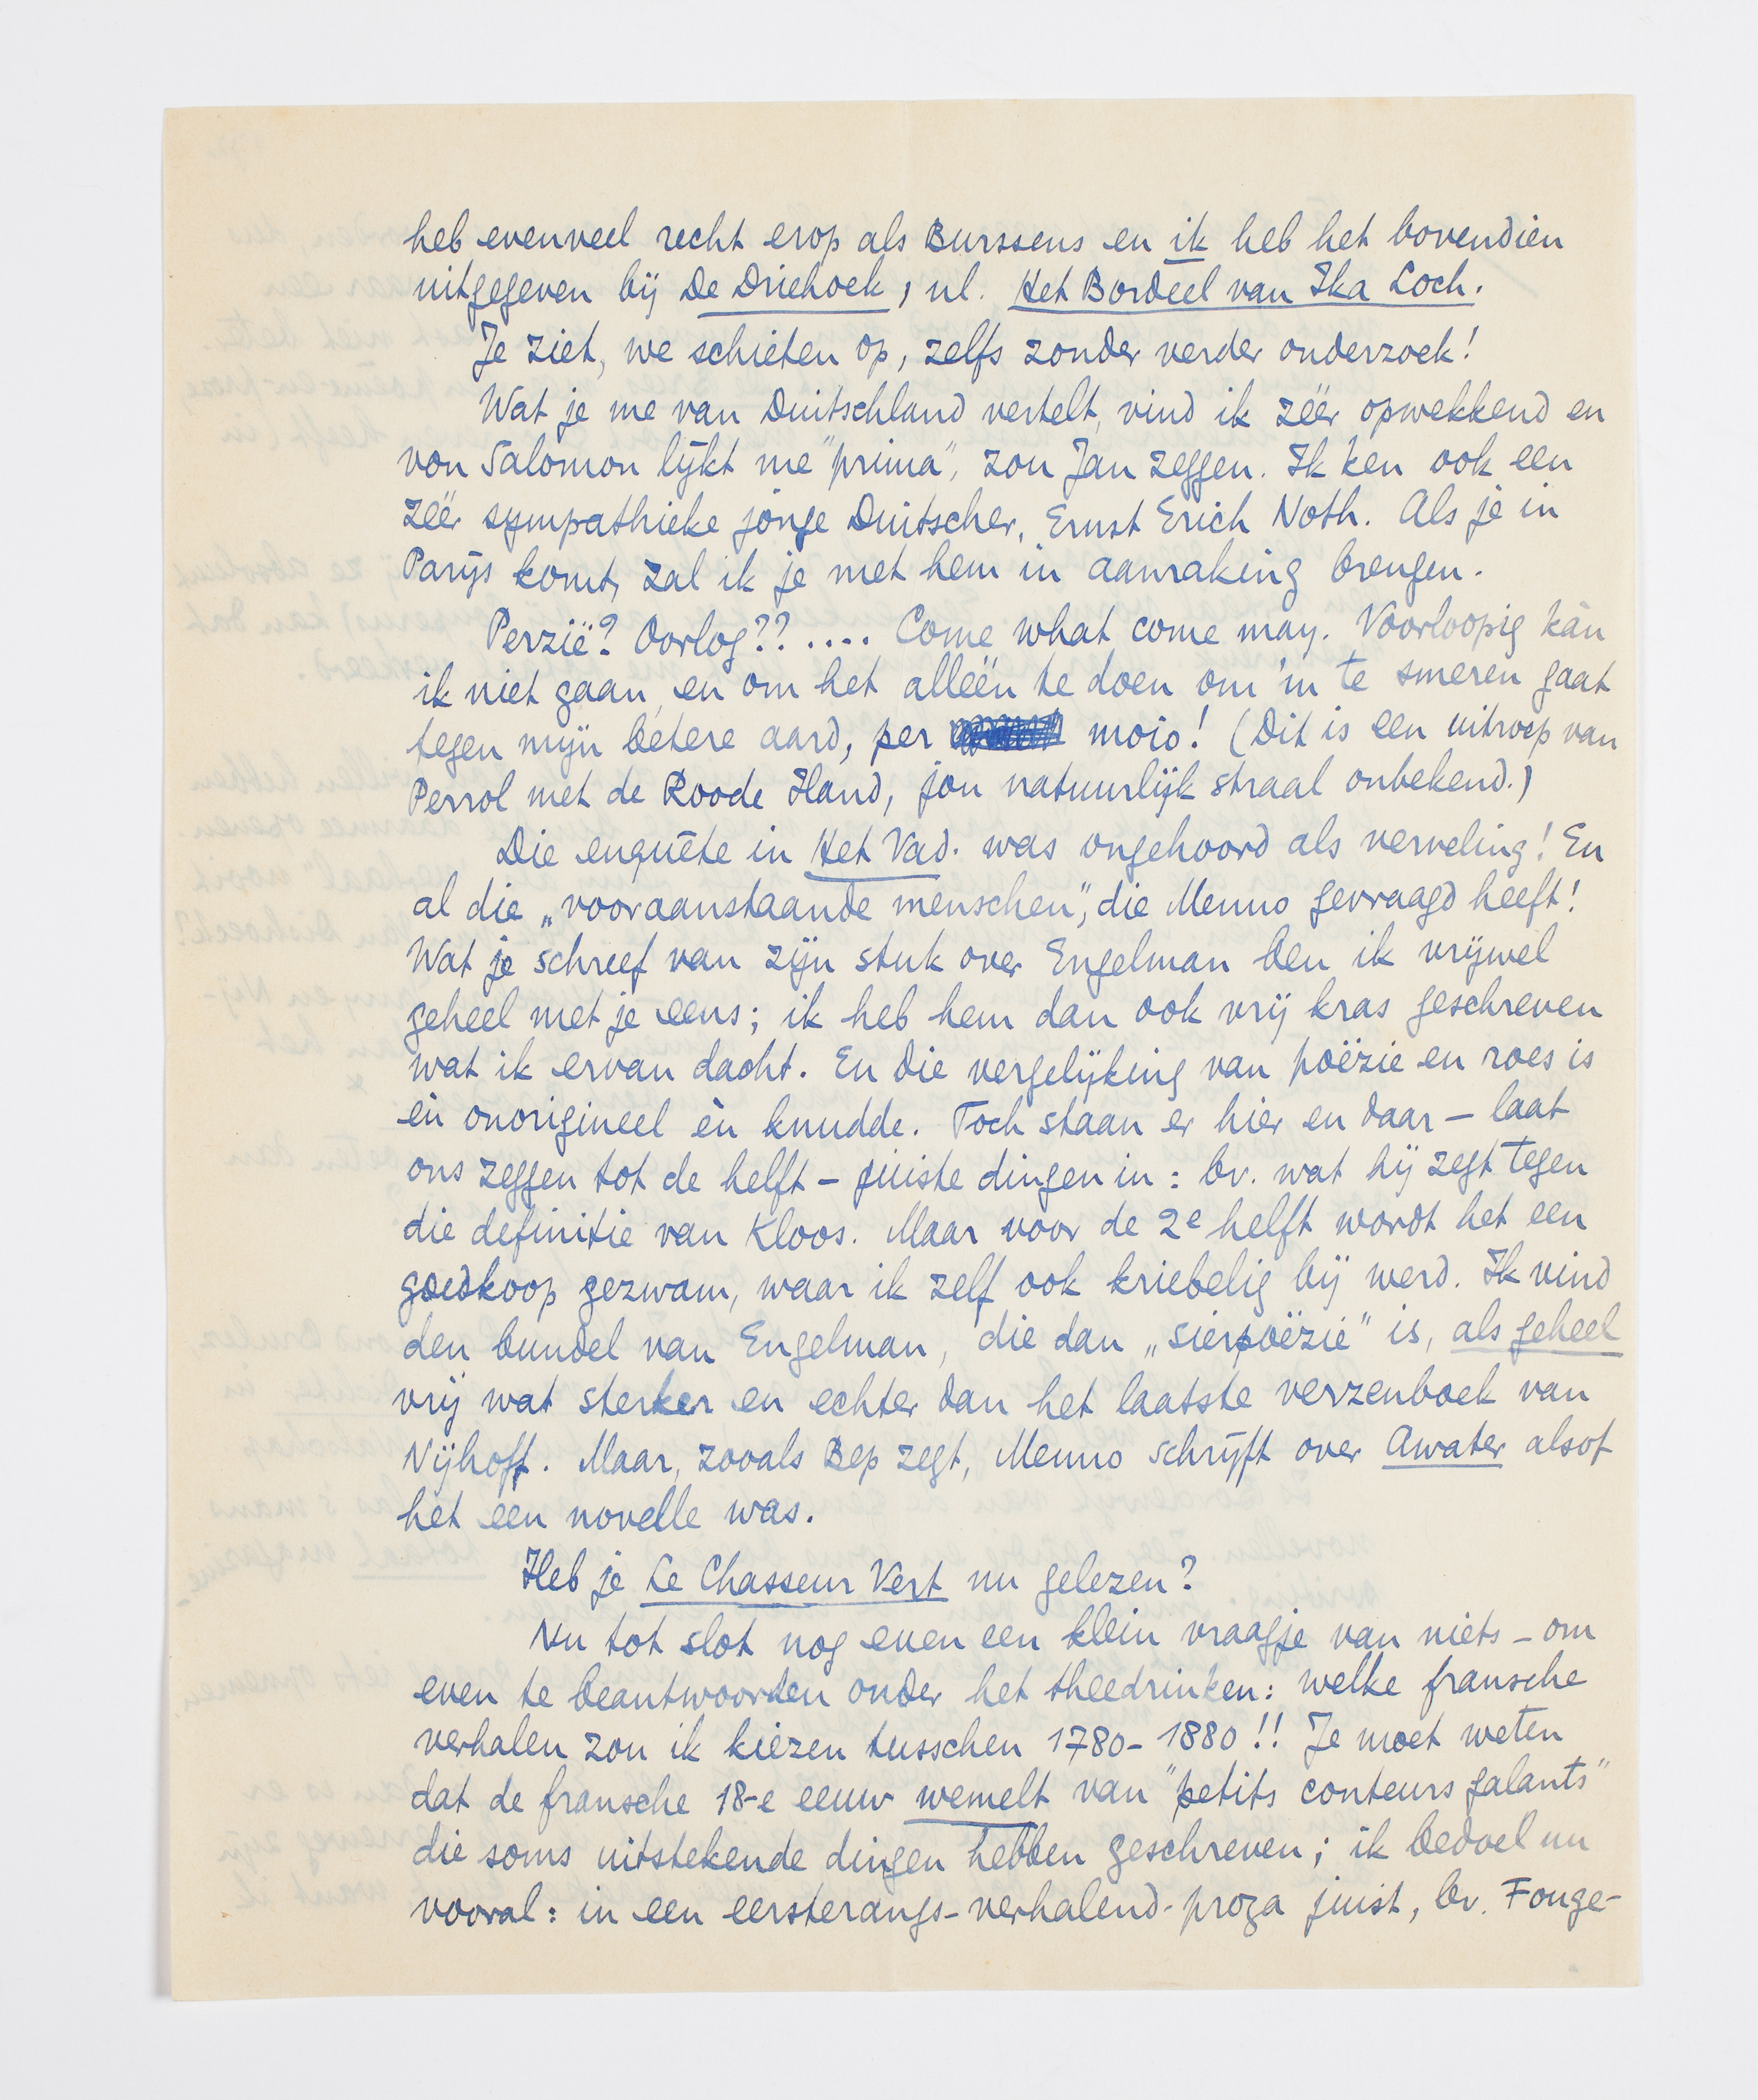 heb evenveel recht erop als Burssens en ik heb het bovendien
uitgegeven bij De Driehoek, nl. Het Bordeel van Ika Loch.
Je ziet, we schieten op, zelfs zonder verder onderzoek!
Wat je me van Duitschland vertelt, vind ik zéér opwekkend en
von Salomon lijkt me "prima", zou Jan zeggen. Ik ken ook een
zéér sympathieke jonge Duitscher, Ernst Erich Noth. Als je in
Parijs komt, zal ik je met hem in aanraking brengen.
Perzië? Oorlog??.... Come what come may. Voorloopig kàn
ik niet gaan, en om het alléén te doen om 'm te smeren gaat
tegen mijn betere aard, per moio! (Dit is een uitroep van
Perrol met de Roode Hand, jou natuurlijk straal onbekend.)
Die enquête in Het Vad. was ongehoord als verveling! En
al die „vooraanstaande menschen", die Menno gevraagd heeft!
Wat je schreef van zijn stuk over Engelman ben ik vrijwel
geheel met je eens; ik heb hem dan ook vrij kras geschreven
wat ik ervan dacht. En die vergelijking van poëzie en roes is
èn onorigineel èn knudde. Toch staan er hier en daar – laat
ons zeggen tot de helft – juiste dingen in: bv. wat hij zegt tegen
die definitie van Kloos. Maar voor de 2e helft wordt het een
goedkoop gezwam, waar ik zelf ook kriebelig bij werd. Ik vind
den bundel van Engelman, die dan „sierpoëzie" is, als geheel
vrij wat sterker en echter dan het laatste verzenboek van
Nijhoff. Maar, zooals Bep zegt, Menno schrijft over Awater alsof
het een novelle was.
Heb je Le Chasseur Vert nu gelezen?
Nu tot slot nog even een klein vraagje van niets – om
even te beantwoorden onder het theedrinken: welke fransche
verhalen zou ik kiezen tusschen 1780–1880!! Je moet weten
dat de fransche 18-e eeuw wemelt van "petits conteurs galants"
die soms uitstekende dingen hebben geschreven; ik bedoel nu
vooral: in een eersterangs-verhalend-proza juist, bv. Fouge-